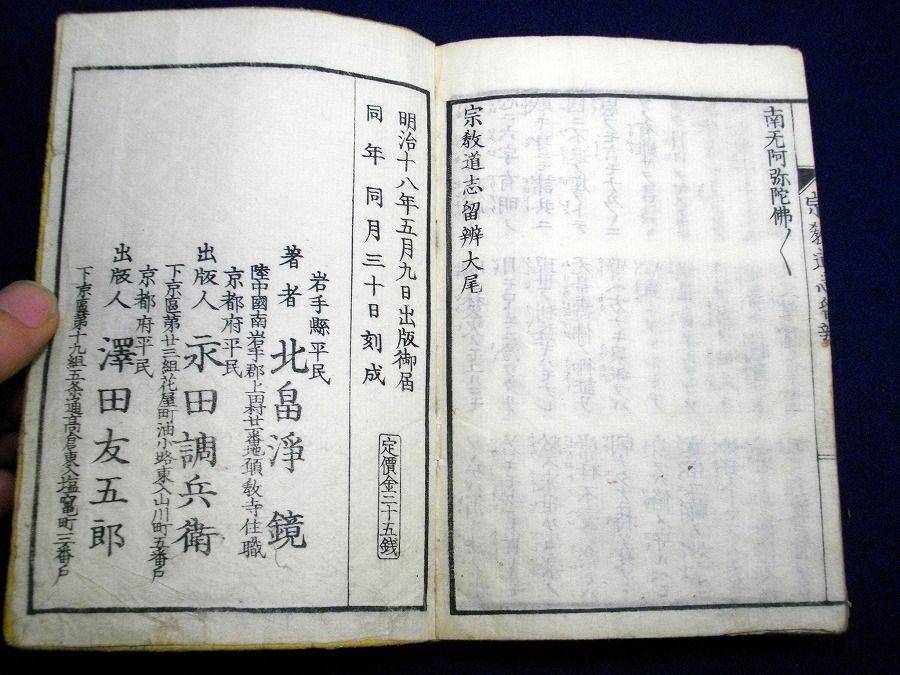 南无阿弥陀佛〱
宗教道志留辨大尾
明治十八年五月九日出版御届
同年同月三十日刻成
定價金三十五銭
岩手縣平民
著者 北畠淨鏡
陸中國南岩手郡上田村廿一番地願教寺住職
京都府平民
出版人 永田調兵衛
下京區第廿三組花屋町油小路東入山川町五番戸
京都府平民
出版人 澤田友五郎
下京區第十九組五条通高倉東入塩竈町三番戸